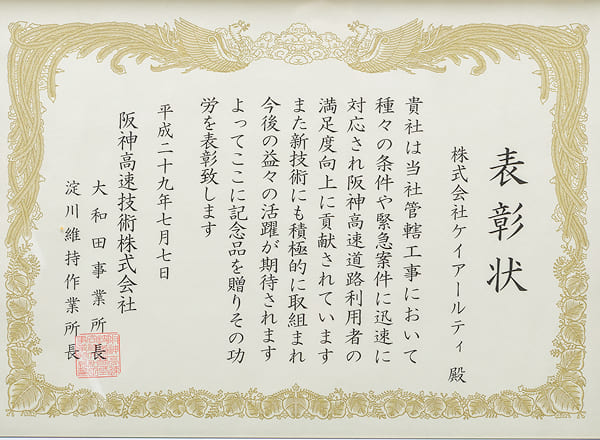 表彰状
株式会社ケイアールティ 殿
貴社は当社管轄工事において
種々の条件や緊急案件に迅速に
対応され阪神高速道路利用者の
満足度向上に貢献されています
また新技術にも積極的に取組まれ
今後の益々の活躍が期待されます
よってここに記念品を贈りその功
労を表彰致します
平成二十九年七月七日
阪神高速技術株式会社
大和田事業所長
淀川維持作業所長